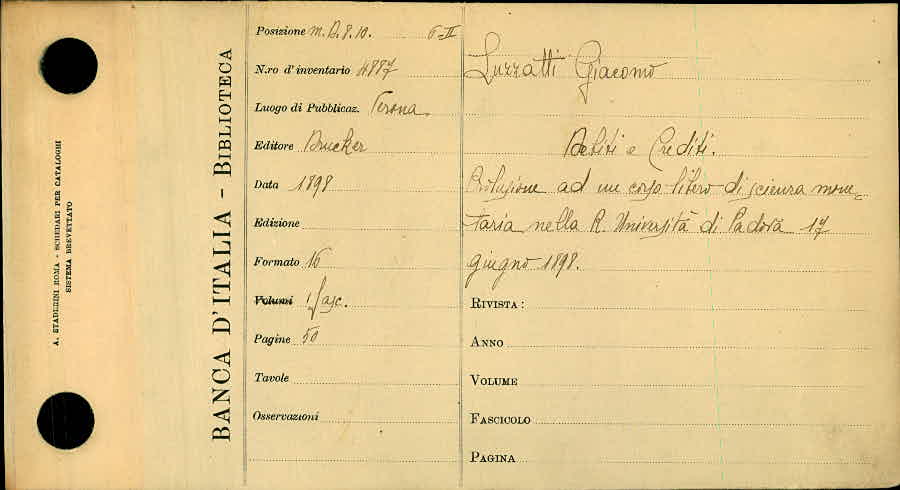 A. STADERINI ROMA - SCHEDARI PER CATALOGHI
SISTEMA BREVETTATO
BANCA D'ITALIA - BIBLIOTECA
Posizione m.D.8.10. 6-II
N.ro d'inventario 4887
Luogo di Pubblicaz. Verona
Editore Drucker
Data 1898
Edizione
Formato 16
Volumi 1 fasc.
Pagine 50
Tavole
Osservazioni
Luzzatti Giacomo
Debiti e Crediti.
Prolusione ad un corso libero di scienza mone=
taria nella R. Università di Padova 17
giugno 1898.
RIVISTA:
ANNO
VOLUME
FASCICOLO
PAGINA